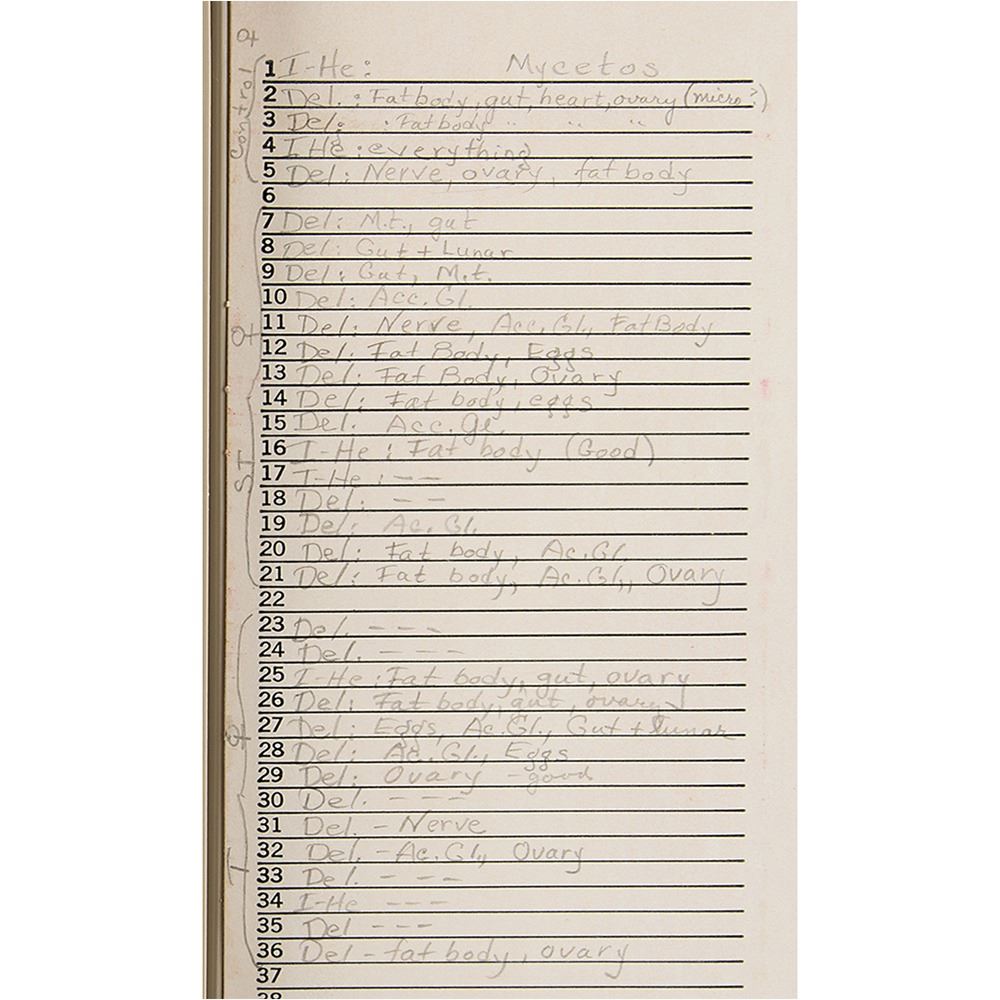 ♀
Control
1 I-He: Mycetos
2 Del.: Fatbody, gut, heart, ovary (micro?)
3 Del: : Fatbody " " "
4 I-He: everything
5 Del: Nerve, ovary, fat body
6
7 Del: M.t., gut
8 Del: Gut + Lunar
9 Del: Gut, M.t.
10 Del: Acc. Gl.
♀
11 Del: Nerve, Acc. Gl., FatBody
12 Del: Fat Body, Eggs
13 Del: Fat Body, Ovary
14 Del: Fat body, eggs
15 Del. Acc. Gl.
ST
16 I-He: Fat body (Good)
17 I-He: - -
18 Del: - -
19 Del: Ac. Gl.
20 Del: Fat body, Ac. Gl
21 Del: Fat body, Ac. Gl., Ovary
22
23 Del. - - -
24 Del. - - - -
25 I-He: Fat body, gut, ovary
26 Del: Fat body, gut, ovary
♀
27 Del: Eggs, Ac. Gl., Gut + Lunar
28 Del: Ac. Gl., Eggs
29 Del: Ovary - good
30 Del. - - - -
31 Del. - Nerve
T
32 Del. - Ac. Gl., Ovary
33 Del. - - -
34 I-He - - -
35 Del - - -
36 Del - fat body, ovary
37
38